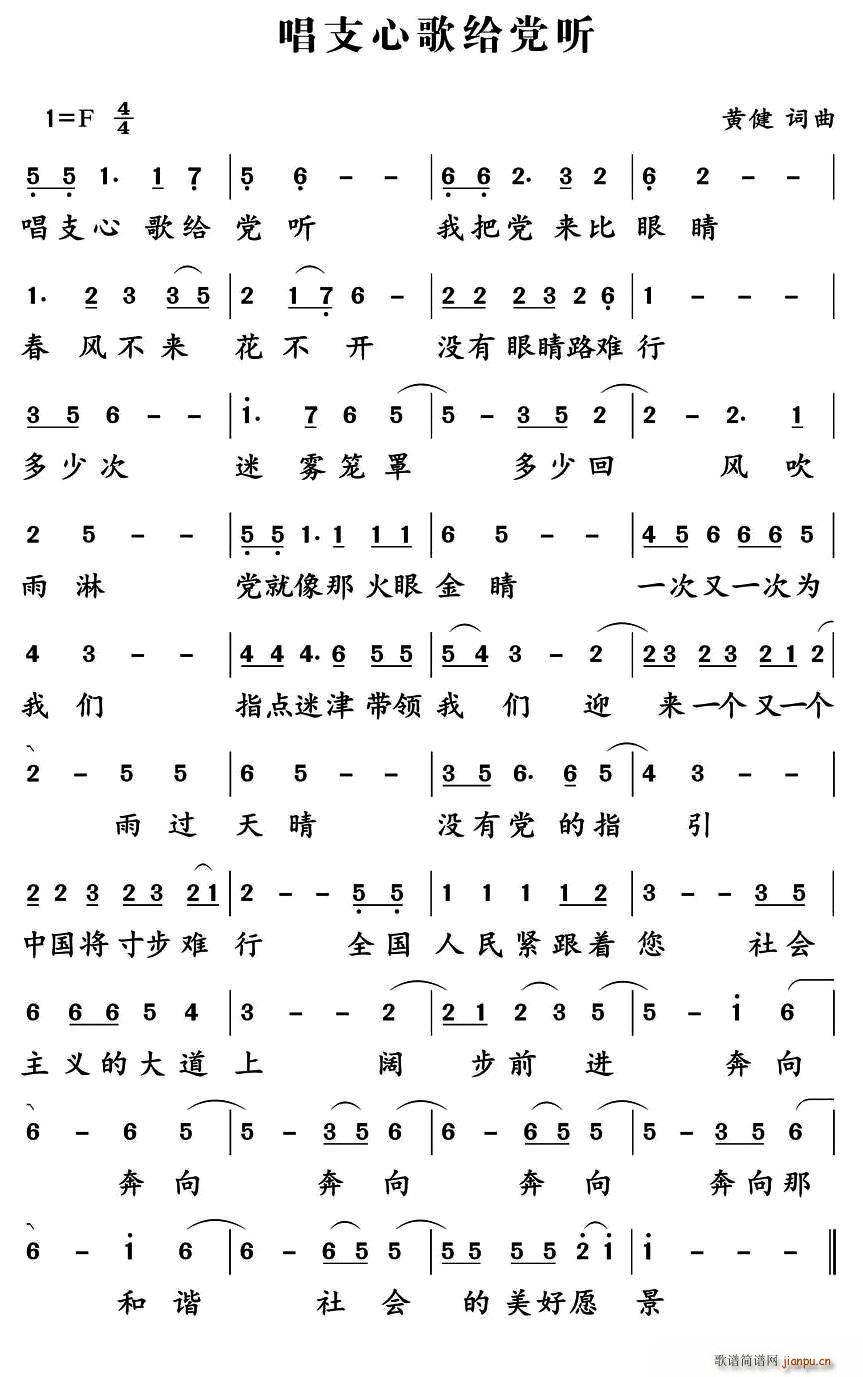 唱支心歌给党听
1=F 4/4 黄健 词曲
5 5 1· 1 7 | 5 6 - - | 6 6 2· 3 2 | 6 2 - - |
唱支心 歌给 党 听 我把党 来比 眼 睛
1· 2 3 3 5 | 2 1 7 6 - | 2 2 2 3 2 6 | 1 - - - |
春 风不 来 花 不 开 没有 眼睛路难 行
3 5 6 - - | 1· 7 6 5 | 5 - 3 5 2 | 2 - 2· 1 |
多少次 迷 雾笼 罩 多少回 风 吹
2 5 - - | 5 5 1· 1 1 1 | 6 5 - - | 4 5 6 6 6 5 |
雨 淋 党就像那 火眼 金 睛 一次又一次为
4 3 - - | 4 4 4· 6 5 5 | 5 4 3 - 2 | 2 3 2 3 2 1 2 |
我 们 指点迷津 带领 我 们 迎 来 一个 又一个
2 - 5 5 | 6 5 - - | 3 5 6· 6 5 | 4 3 - - |
雨 过 天 晴 没有党 的指 引
2 2 3 2 3 2 1 | 2 - - 5 5 | 1 1 1 1 2 | 3 - - 3 5 |
中国将 寸步 难 行 全国 人民紧跟着 您 社会
6 6 6 5 4 | 3 - - 2 | 2 1 2 3 5 | 5 - 1 6 |
主义的 大道 上 阔 步前 进 奔向
6 - 6 5 | 5 - 3 5 6 | 6 - 6 5 5 | 5 - 3 5 6 |
奔 向 奔 向 奔 向 奔向那
6 - 1 6 | 6 - 6 5 5 | 5 5 5 5 2 1 | 1 - - - ‖
和 谐 社 会 的 美好愿 景
歌谱简谱网 jianpu.cn